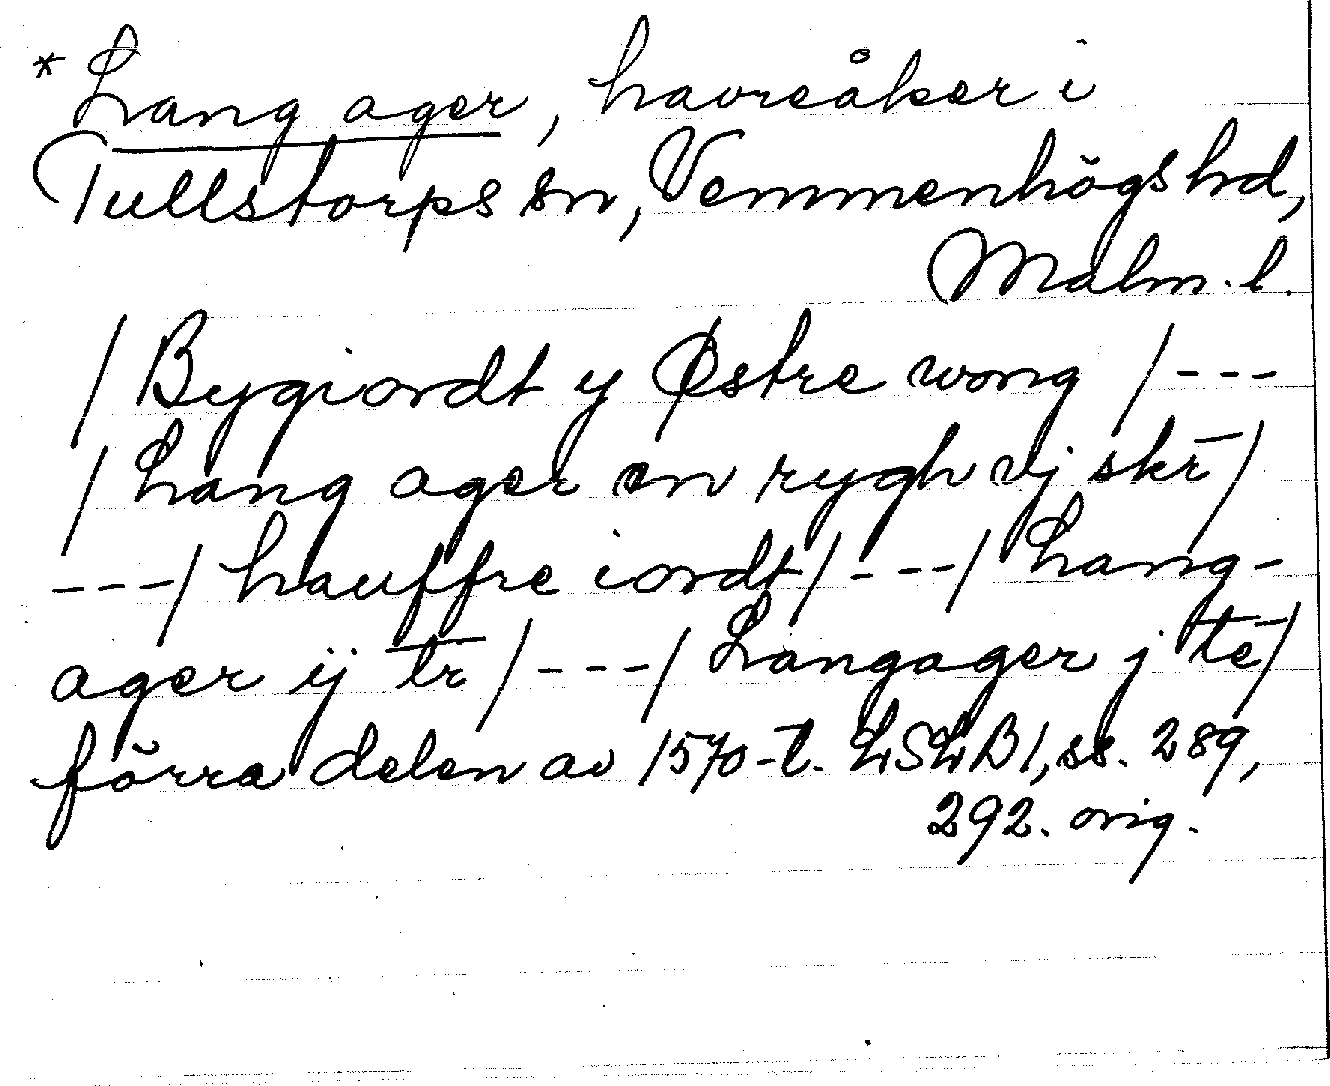 *Lang ager, havreåker i
Tullstorps sn, Vemmenhögs hd,
Malm. l.
/ Bygiordt y Østre wong /---
/ Lang ager en rygh vj skr̄ /
---/ hauffre iordt /---/ Lang-
ager ij tr̄ /---/ Langager j tē /
förra delen av 1570-t. LSLB 1, ss. 289,
292. orig.